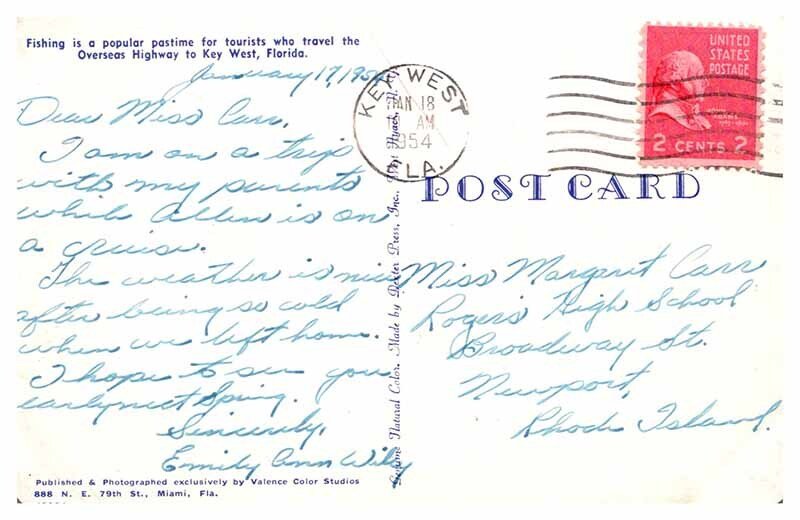 Fishing is a popular pastime for tourists who travel the
Overseas Highway to Key West, Florida.
January 17, 1954
Dear Miss Carr,
I am on a trip
with my parents
while Allen is on
a cruise.
The weather is nice
after being so cold
when we left home.
I hope to see you
early next Spring.
Sincerely,
Emily Ann Wiley
Published & Photographed exclusively by Valence Color Studios
888 N. E. 79th St., Miami, Fla.
Genuine Natural Color, Made by Dexter Press, Inc., West Nyack, N. Y.
KEY WEST
JAN 18
AM
1954
FLA.
UNITED
STATES
POSTAGE
2 CENTS 2
POST CARD
Miss Margaret Carr
Rogers High School
Broadway St.
Newport,
Rhode Island.